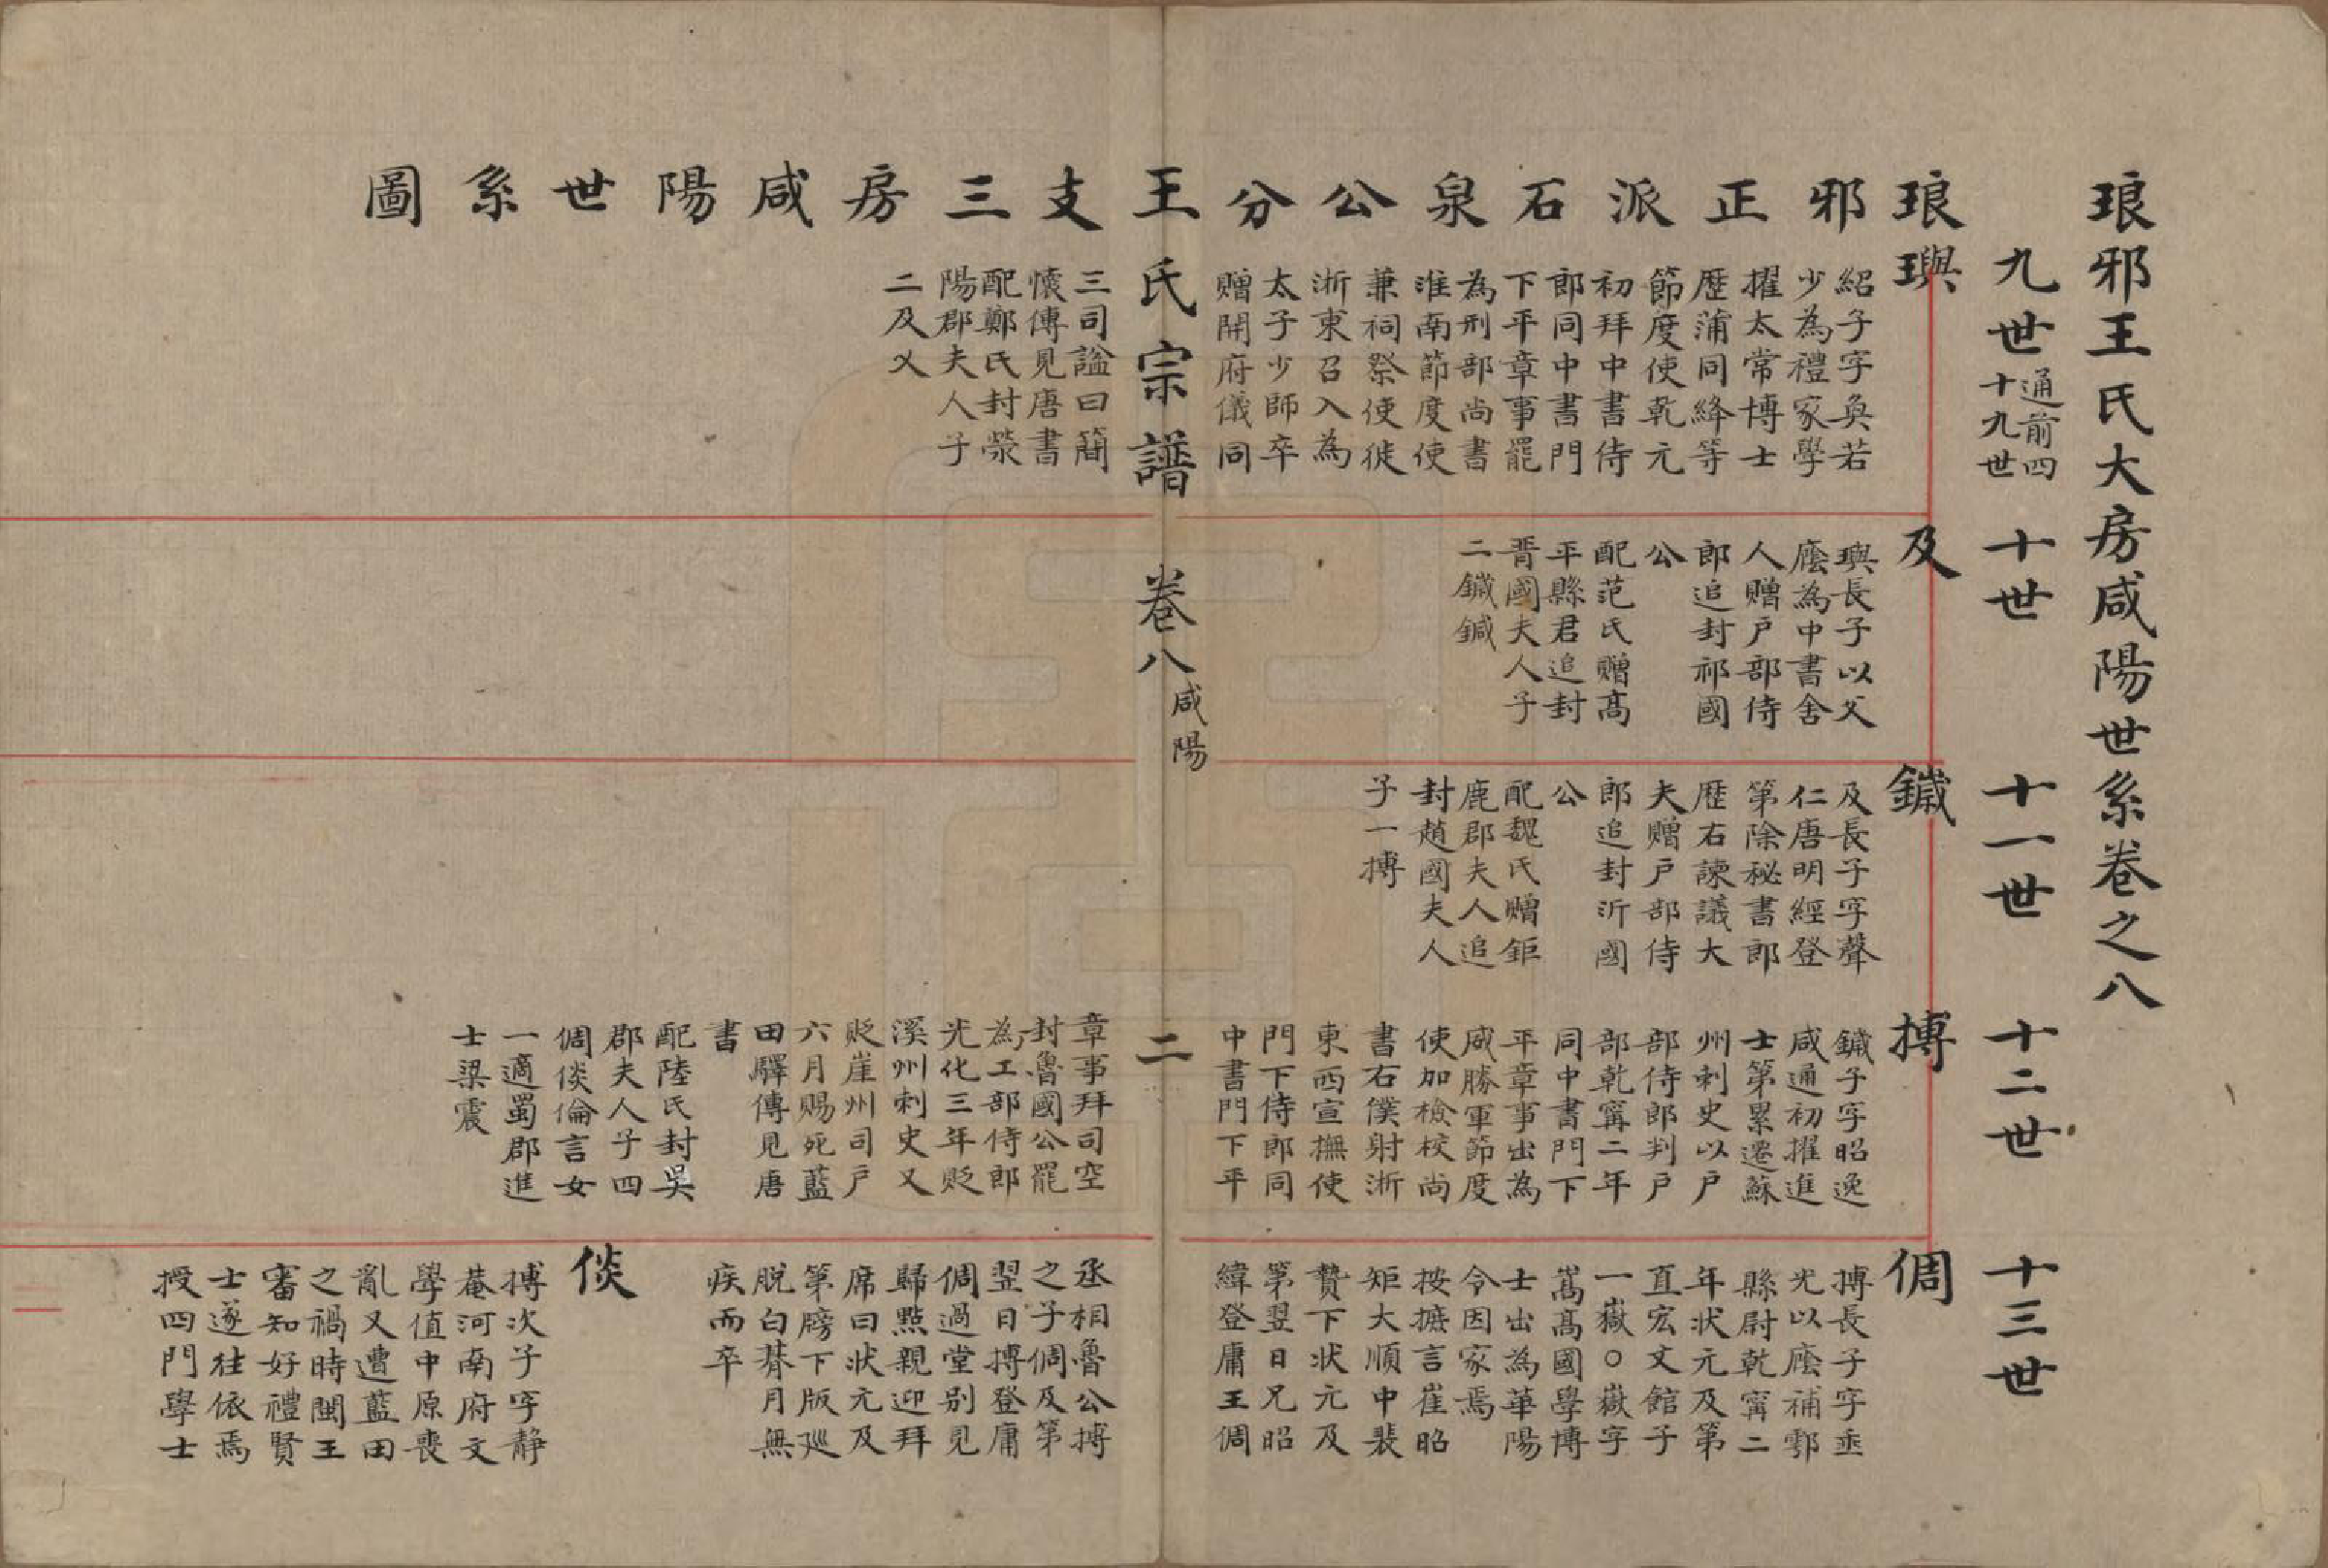 琅邪王氏大房咸陽世系卷之八
九世
通前四
十九世
十世
十一世
十二世
十三世
琅邪正派石泉公分支三房咸陽世系圖
璵
紹子字奐若
少為禮家學
擢太常博士
歷蒲同絳等
節度使乾元
初拜中書侍
郎同中書門
下平章事罷
為刑部尚書
淮南節度使
兼祠祭使徙
浙東召入為
太子少師卒
贈開府儀同
三司諡曰簡
懷傳見唐書
配鄭氏封滎
陽郡夫人子
二及乂
及
璵長子以父
廕為中書舍
人贈戶部侍
郎追封祁國
公
配范氏贈高
平縣君追封
晉國夫人子
二鍼鍼
鍼
及長子字聲
仁唐明經登
第除秘書郎
歷右諫議大
夫贈戶部侍
郎追封沂國
公
配魏氏贈鉅
鹿郡夫人追
封趙國夫人
子一搏
搏
鍼子字昭逸
咸通初擢進
士第累遷蘇
州刺史以戶
部侍郎判戶
部乾寧二年
同中書門下
平章事出為
威勝軍節度
使加檢校尚
書右僕射浙
東西宣撫使
門下侍郎同
中書門下平
章事拜司空
封魯國公罷
為工部侍郎
光化三年貶
溪州刺史又
貶崖州司戶
六月賜死藍
田驛傳見唐
書
配陸氏封吳
郡夫人子四
倜倓倫言女
一適蜀郡進
士梁震
倜
搏長子字垂
光以廕補鄠
縣尉乾寧二
年狀元及第
直宏文館子
一嶽○嶽字
嵩高國學博
士出為華陽
令因家焉
按摭言崔昭
矩大順中裴
贄下狀元及
第翌日兄昭
緯登庸王倜
丞相魯公搏
之子倜及第
翌日搏登庸
倜過堂別見
歸黯親迎拜
席曰狀元及
第牓下版巡
脫白朞月無
疾而卒
倓
搏次子字靜
菴河南府文
學值中原喪
亂又遭藍田
之禍時閩王
審知好禮賢
士遂往依焉
授四門學士
王氏宗譜
卷八
咸陽
二